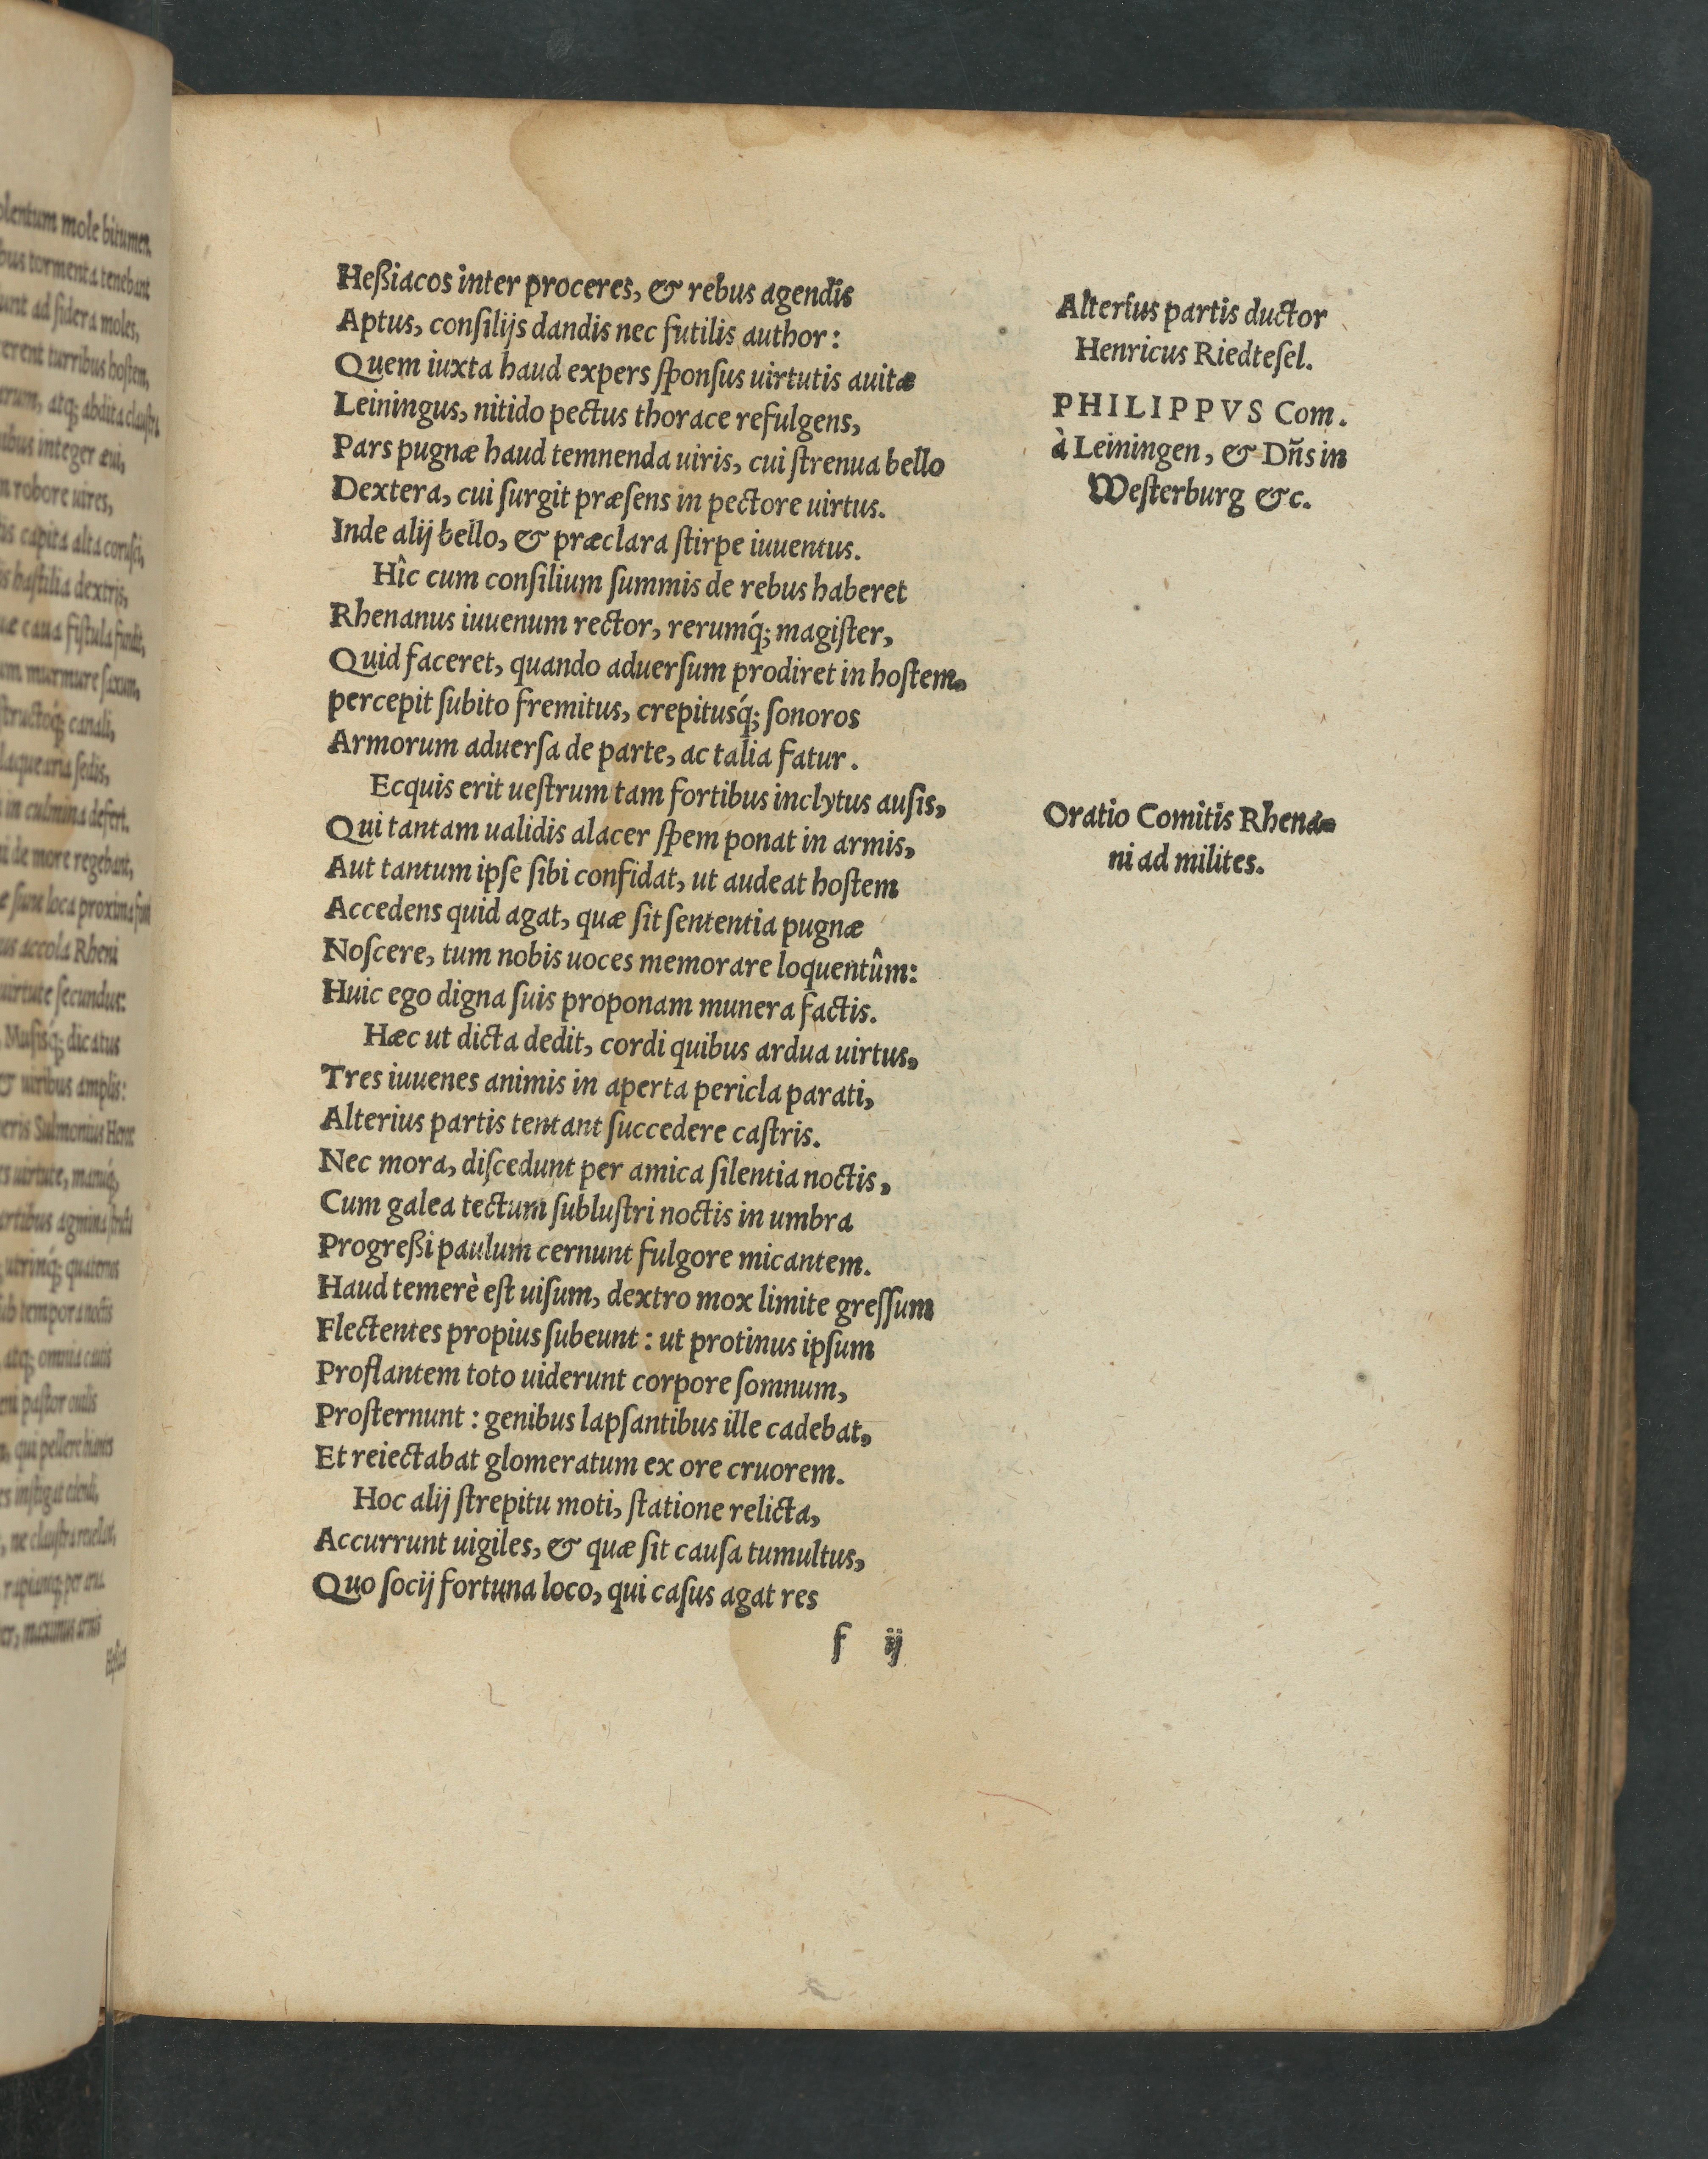 Heßiacos inter proceres, & rebus agendis
Aptus, conſilijs dandis nec futilis author:
Quem iuxta haud expers ſponſus uirtutis auitæ
Leiningus, nitido pectus thorace refulgens,
Pars pugnæ haud temnenda uiris, cui ſtrenua bello
Dextera, cui ſurgit præſens in pectore uirtus.
Inde alij bello, & præclara ſtirpe iuuentus.
Hîc cum conſilium ſummis de rebus haberet
Rhenanus iuuenum rector, rerumq́; magiſter,
Quid faceret, quando aduerſum prodiret in hoſtem,
percepit ſubito fremitus, crepitusq́; ſonoros
Armorum aduerſa de parte, ac talia fatur.
Ecquis erit ueſtrum tam fortibus inclytus auſis,
Qui tantam ualidis alacer ſpem ponat in armis,
Aut tantum ipſe ſibi confidat, ut audeat hoſtem
Accedens quid agat, quæ ſit ſententia pugnæ
Noſcere, tum nobis uoces memorare loquentûm:
Huic ego digna ſuis proponam munera factis.
Hæc ut dicta dedit, cordi quibus ardua uirtus,
Tres iuuenes animis in aperta pericla parati,
Alterius partis tentant ſuccedere caſtris.
Nec mora, diſcedunt per amica ſilentia noctis,
Cum galea tectum ſubluſtri noctis in umbra
Progreßi paulum cernunt fulgore micantem.
Haud temerè eſt uiſum, dextro mox limite greſſum
Flectentes propius ſubeunt: ut protinus ipſum
Proflantem toto uiderunt corpore ſomnum,
Proſternunt: genibus lapſantibus ille cadebat,
Et reiectabat glomeratum ex ore cruorem.
Hoc alij ſtrepitu moti, ſtatione relicta,
Accurrunt uigiles, & quæ ſit cauſa tumultus,
Quo ſocij fortuna loco, qui caſus agat res
f ij
Alterius partis ductor
Henricus Riedteſel.
PHILIPPVS Com.
à Leiningen, & Dñs in
Weſterburg &c.
Oratio Comitis Rhena-
ni ad milites.